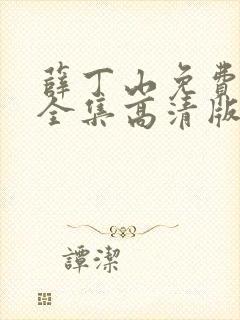 薛丁山免費
全集高清版
譚潔